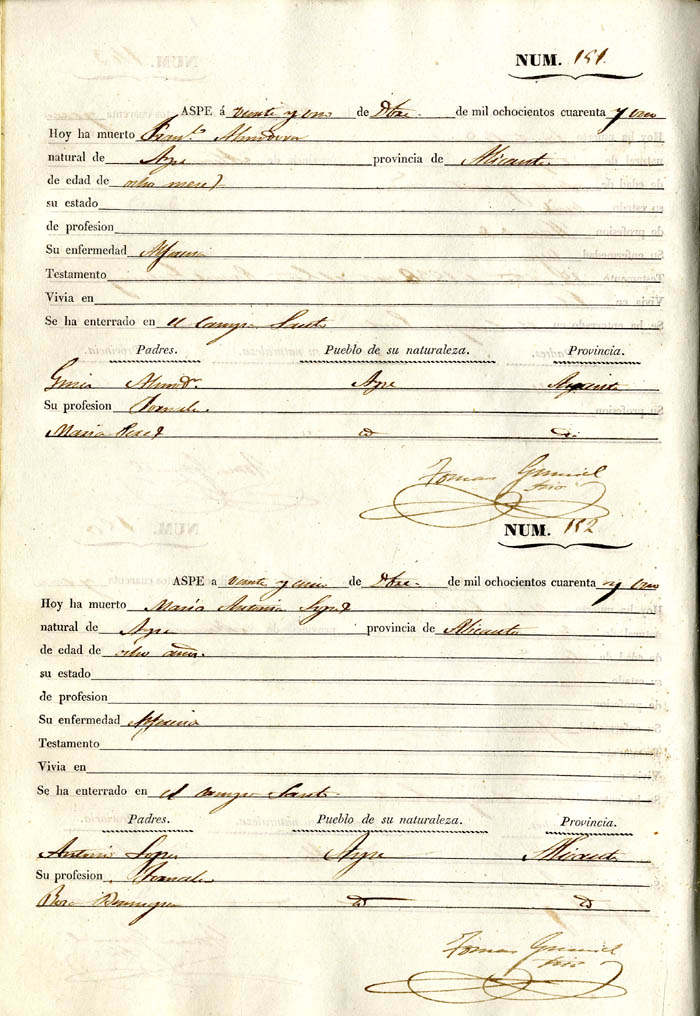 NUM. 151.
ASPE á veinte y uno de Dbre. de mil ochocientos cuarenta y uno
Hoy ha muerto Fran.co Almodovar
natural de Aspe provincia de Alicante.
de edad de ocho meses
su estado
de profesion
Su enfermedad Alferecia
Testamento
Vivia en
Se ha enterrado en el Campo Santo
Padres. Pueblo de su naturaleza. Provincia.
Aspe Alicante
Su profesion Jornalero.
Maria Perez id id
Tomas
NUM. 152.
ASPE a veinte y de Dbre. de mil ochocientos cuarenta y uno
Hoy ha muerto Maria Antonia Lopez
natural de Aspe provincia de Alicante
de edad de ocho años.
su estado
de profesion
Su enfermedad Alferecia
Testamento
Vivia en
Se ha enterrado en el campo Santo.
Padres. Pueblo de su naturaleza. Provincia.
Antonio Lopez Aspe Alicante
Su profesion Jornalero
Rosa id id
Tomas